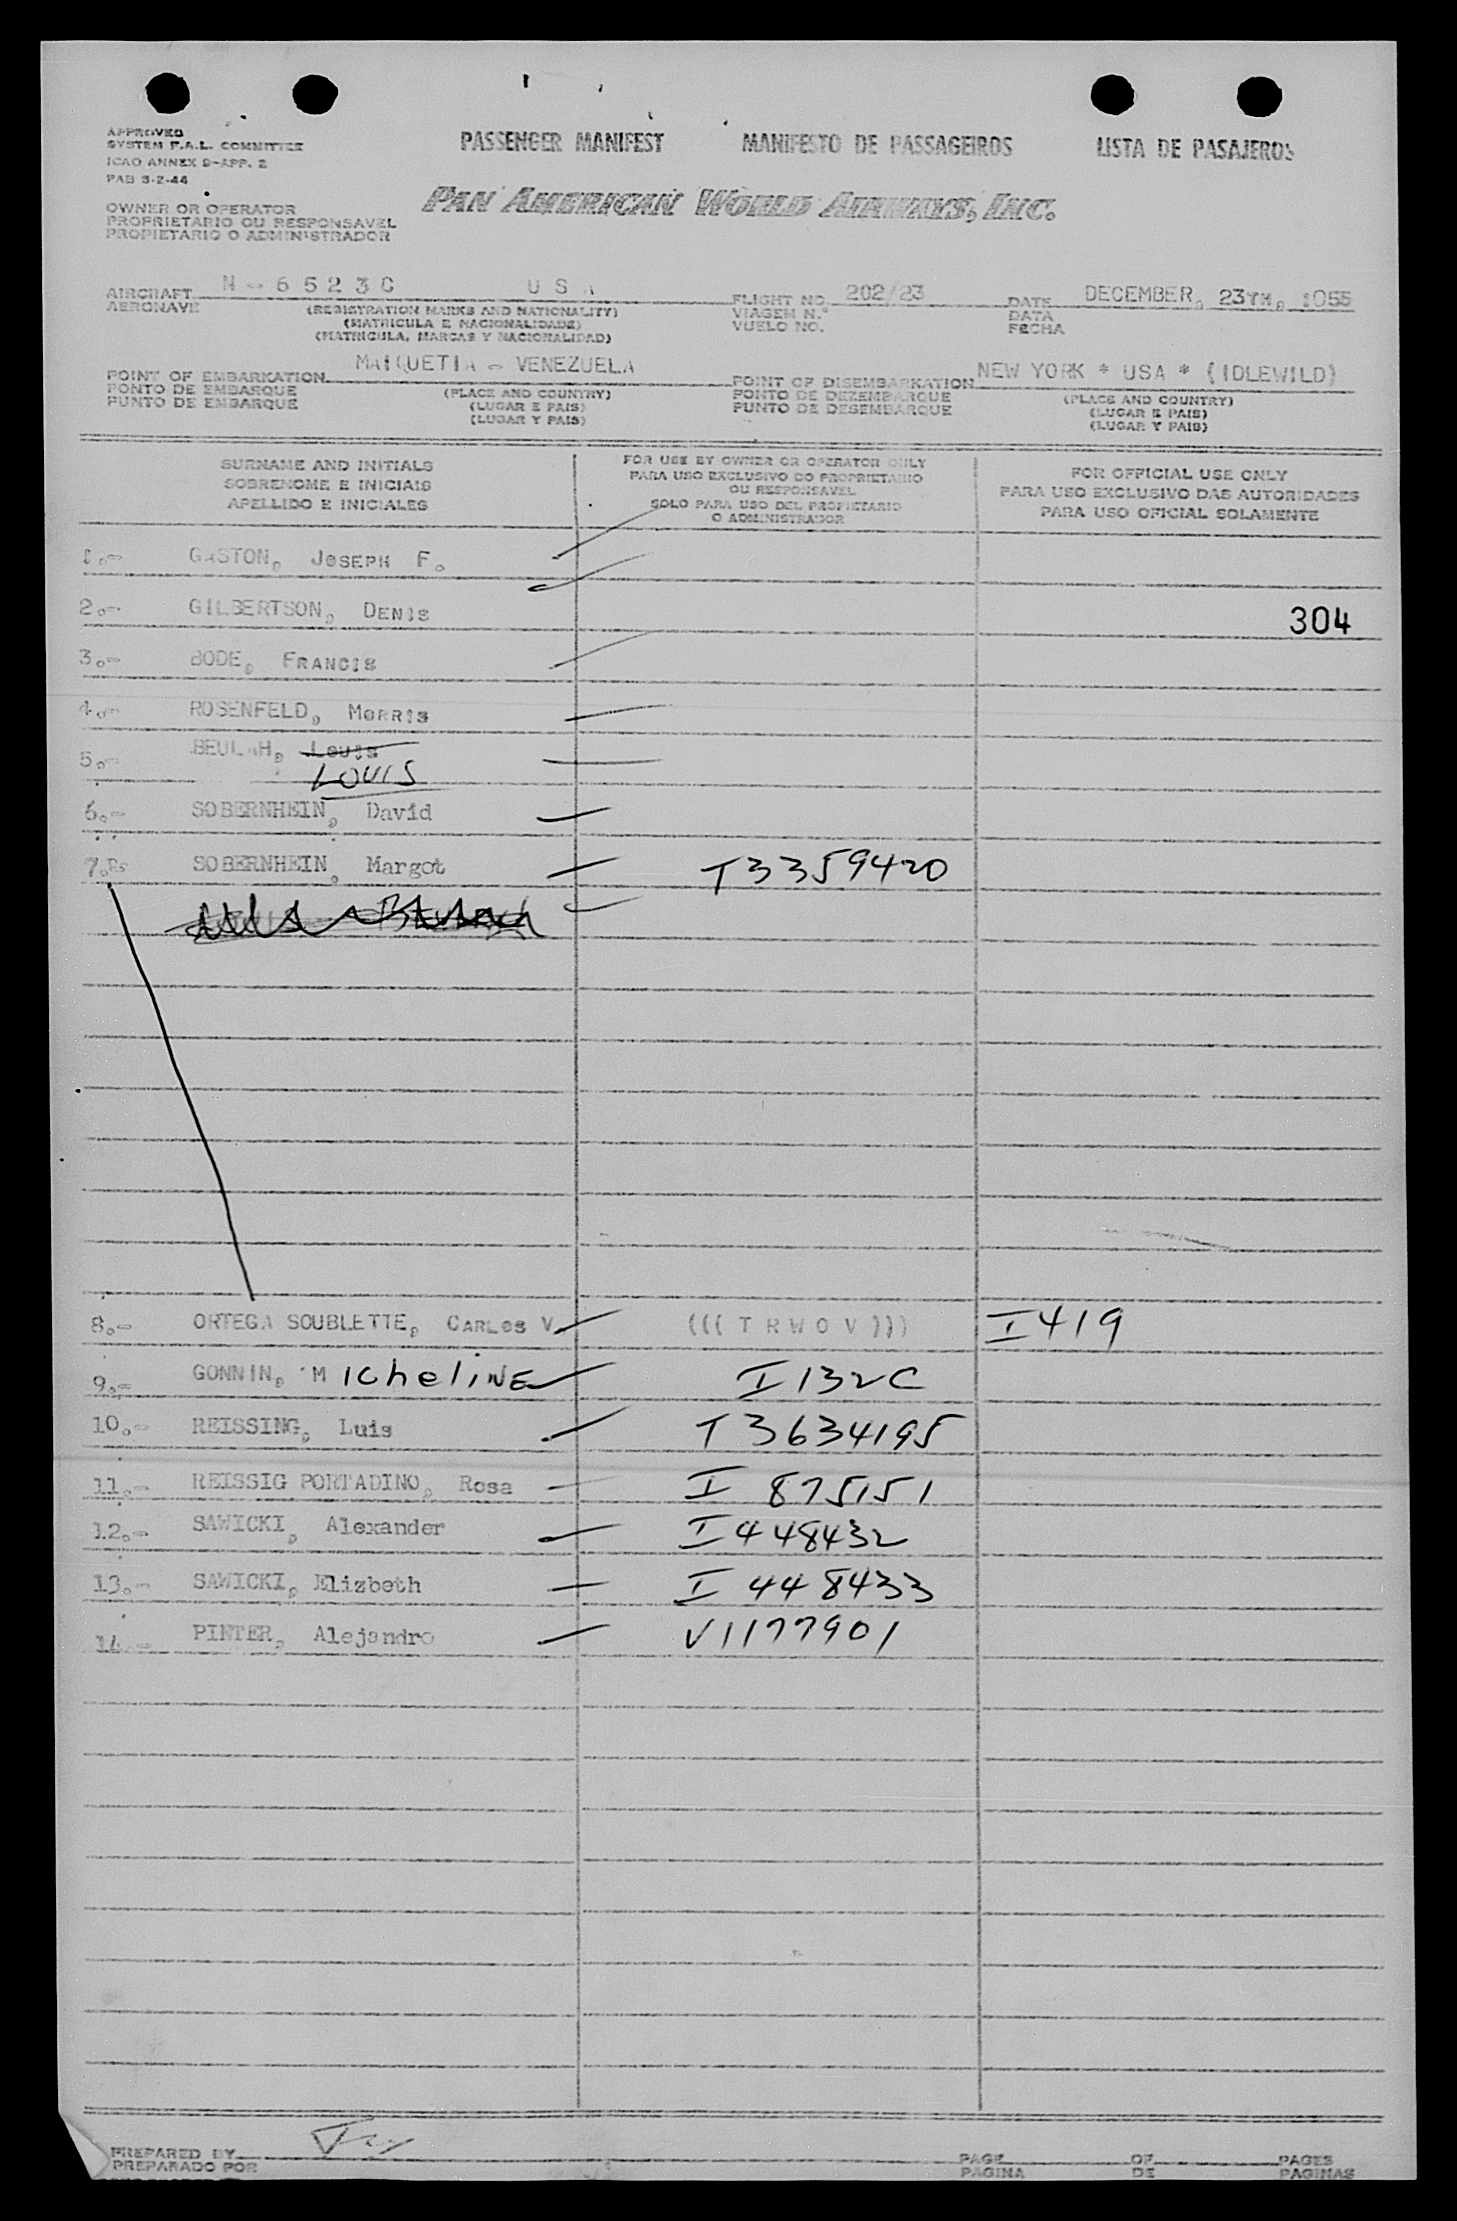 APPROVED
SYSTEM F.A.L. COMMITTEE
ICAO ANNEX 9-APP. 2
PAB 3-2-44
PASSENGER MANIFEST MANIFESTO DE PASSAGEIROS LISTA DE PASAJEROS
PAN AMERICAN WORLD AIRWAYS, INC.
OWNER OR OPERATOR
PROPRIETARIO OU RESPONSAVEL
PROPIETARIO O ADMINISTRADOR
AIRCRAFT N-6523C USA FLIGHT NO. 202/23 DATE DECEMBER, 23TH, 1055
AERONAVE (REGISTRATION MARKS AND NATIONALITY) VIAGEM N.º DATA
(MATRICULA E NACIONALIDADE) VUELO NO. FECHA
(MATRICULA, MARCAS Y NACIONALIDAD)
POINT OF EMBARKATION MAIQUETIA - VENEZUELA POINT OF DISEMBARKATION NEW YORK * USA * (IDLEWILD)
PONTO DE EMBARQUE (PLACE AND COUNTRY) PONTO DE DEZEMBARQUE (PLACE AND COUNTRY)
PUNTO DE EMBARQUE (LUGAR E PAIS) PUNTO DE DESEMBARQUE (LUGAR E PAIS)
(LUGAR Y PAIS) (LUGAR Y PAIS)
SURNAME AND INITIALS
SOBRENOME E INICIAIS
APELLIDO E INICIALES
FOR USE BY OWNER OR OPERATOR ONLY
PARA USO EXCLUSIVO DO PROPRIETARIO
OU RESPONSAVEL
SOLO PARA USO DEL PROPIETARIO
O ADMINISTRADOR
FOR OFFICIAL USE ONLY
PARA USO EXCLUSIVO DAS AUTORIDADES
PARA USO OFICIAL SOLAMENTE
1.- GASTON, JOSEPH F.
2.- GILBERTSON, DENIS 304
3.- BODE, FRANCIS
4.- ROSENFELD, MORRIS
5.- BEULAH, Louis
LOUIS
6.- SOBERNHEIN, David
7.- SOBERNHEIN, Margot T3359420
8.- ORTEGA SOUBLETTE, CARLOS V. (((TRWOV))) I419
9.- GONNIN, MIcheliNE I132C
10.- REISSING, Luis T3634195
11.- REISSIG PORTADINO, Rosa I 875151
12.- SAWICKI, Alexander I448432
13.- SAWICKI, Elizbeth I 448433
14.- PINTER, Alejandro V1177901
PREPARED BY PAGE OF PAGES
PREPARADO POR PAGINA DE PAGINAS